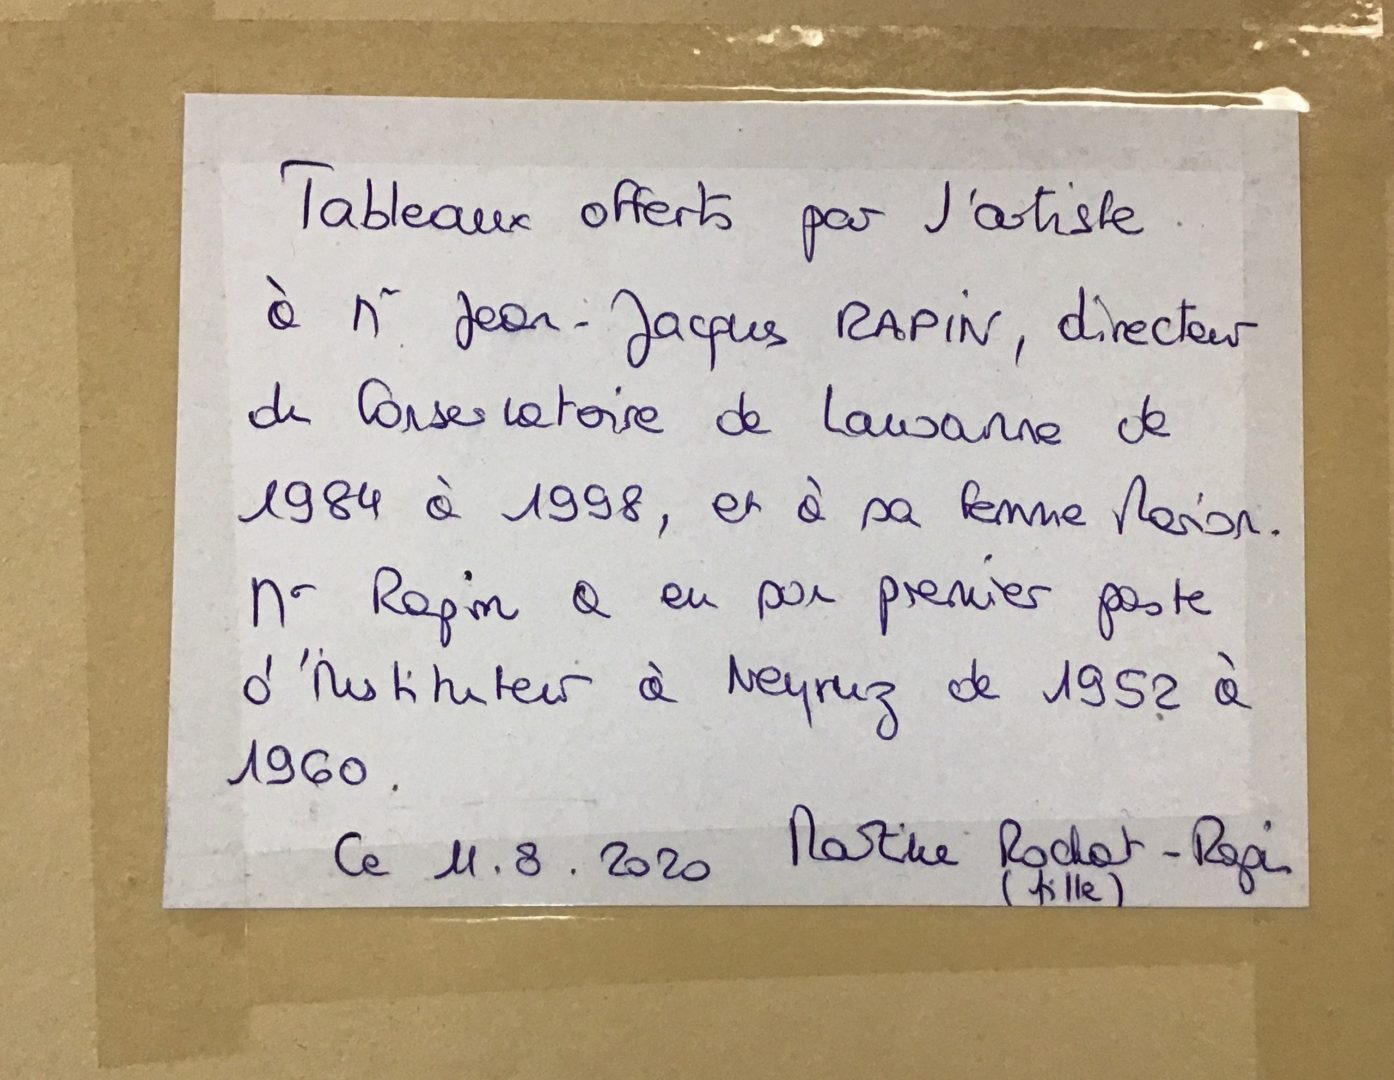 Tableaux offerts par l'artiste
à Mr Jean-Jacques RAPIN, directeur
du Conservatoire de Lausanne de
1984 à 1998, et à sa femme Marion.
Mr Rapin a eu son premier poste
d'instituteur à Neyruz de 1952 à
1960.
Ce 11.8.2020 Martine Rochat-Rapin
(fille)